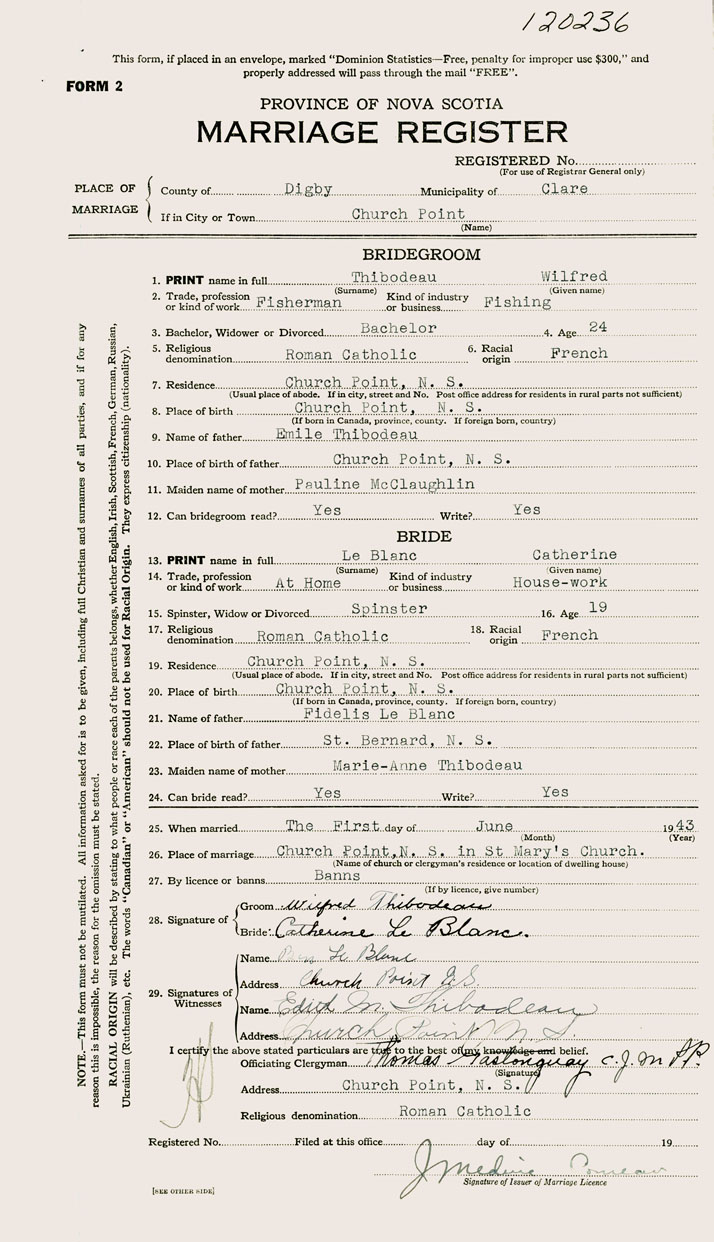 120236
This form, if placed in an envelope, marked "Dominion Statistics—Free, penalty for improper use $300," and
properly addressed will pass through the mail "FREE".
FORM 2
PROVINCE OF NOVA SCOTIA
MARRIAGE REGISTER
REGISTERED No.
(For use of Registrar General only)
PLACE OF MARRIAGE
County of Digby Municipality of Clare
If in City or Town Church Point
(Name)
BRIDEGROOM
1. PRINT name in full Thibodeau Wilfred
(Surname) (Given name)
2. Trade, profession or kind of work Fisherman Kind of industry or business Fishing
3. Bachelor, Widower or Divorced Bachelor 4. Age 24
5. Religious denomination Roman Catholic 6. Racial origin French
7. Residence Church Point, N. S.
(Usual place of abode. If in city, street and No. Post office address for residents in rural parts not sufficient)
8. Place of birth Church Point, N. S.
(If born in Canada, province, county. If foreign born, country)
9. Name of father Emile Thibodeau
10. Place of birth of father Church Point, N. S.
11. Maiden name of mother Pauline McClaughlin
12. Can bridegroom read? Yes Write? Yes
BRIDE
13. PRINT name in full Le Blanc Catherine
(Surname) (Given name)
14. Trade, profession or kind of work At Home Kind of industry or business House-work
15. Spinster, Widow or Divorced Spinster 16. Age 19
17. Religious denomination Roman Catholic 18. Racial origin French
19. Residence Church Point, N. S.
(Usual place of abode. If in city, street and No. Post office address for residents in rural parts not sufficient)
20. Place of birth Church Point, N. S.
(If born in Canada, province, county. If foreign born, country)
21. Name of father Fidelis Le Blanc
22. Place of birth of father St. Bernard, N. S.
23. Maiden name of mother Marie-Anne Thibodeau
24. Can bride read? Yes Write? Yes
25. When married The First day of June 1943
(Month) (Year)
26. Place of marriage Church Point,N. S. in St Mary's Church.
(Name of church or clergyman's residence or location of dwelling house)
27. By licence or banns Banns
(If by licence, give number)
28. Signature of
Groom Wilfred Thibodeau
Bride Catherine Le Blanc.
29. Signatures of Witnesses
Name Le Blanc
Address Church Point N.S.
Name Edith M. Thibodeau
Address Church Point N. S.
I certify the above stated particulars are true to the best of my knowledge and belief.
Officiating Clergyman Thomas c.J.M P.P.
(Signature)
Address Church Point, N. S.
Religious denomination Roman Catholic
Registered No. Filed at this office day of 19
J Comeau
Signature of Issuer of Marriage Licence
[SEE OTHER SIDE]
NOTE.—This form must not be mutilated. All information asked for is to be given, including full Christian and surnames of all parties, and if for any
reason this is impossible, the reason for the omission must be stated.
RACIAL ORIGIN will be described by stating to what people or race each of the parents belongs, whether English, Irish, Scottish, French, German, Russian,
Ukrainian (Ruthenian), etc. The words "Canadian" or "American" should not be used for Racial Origin. They express citizenship (nationality).